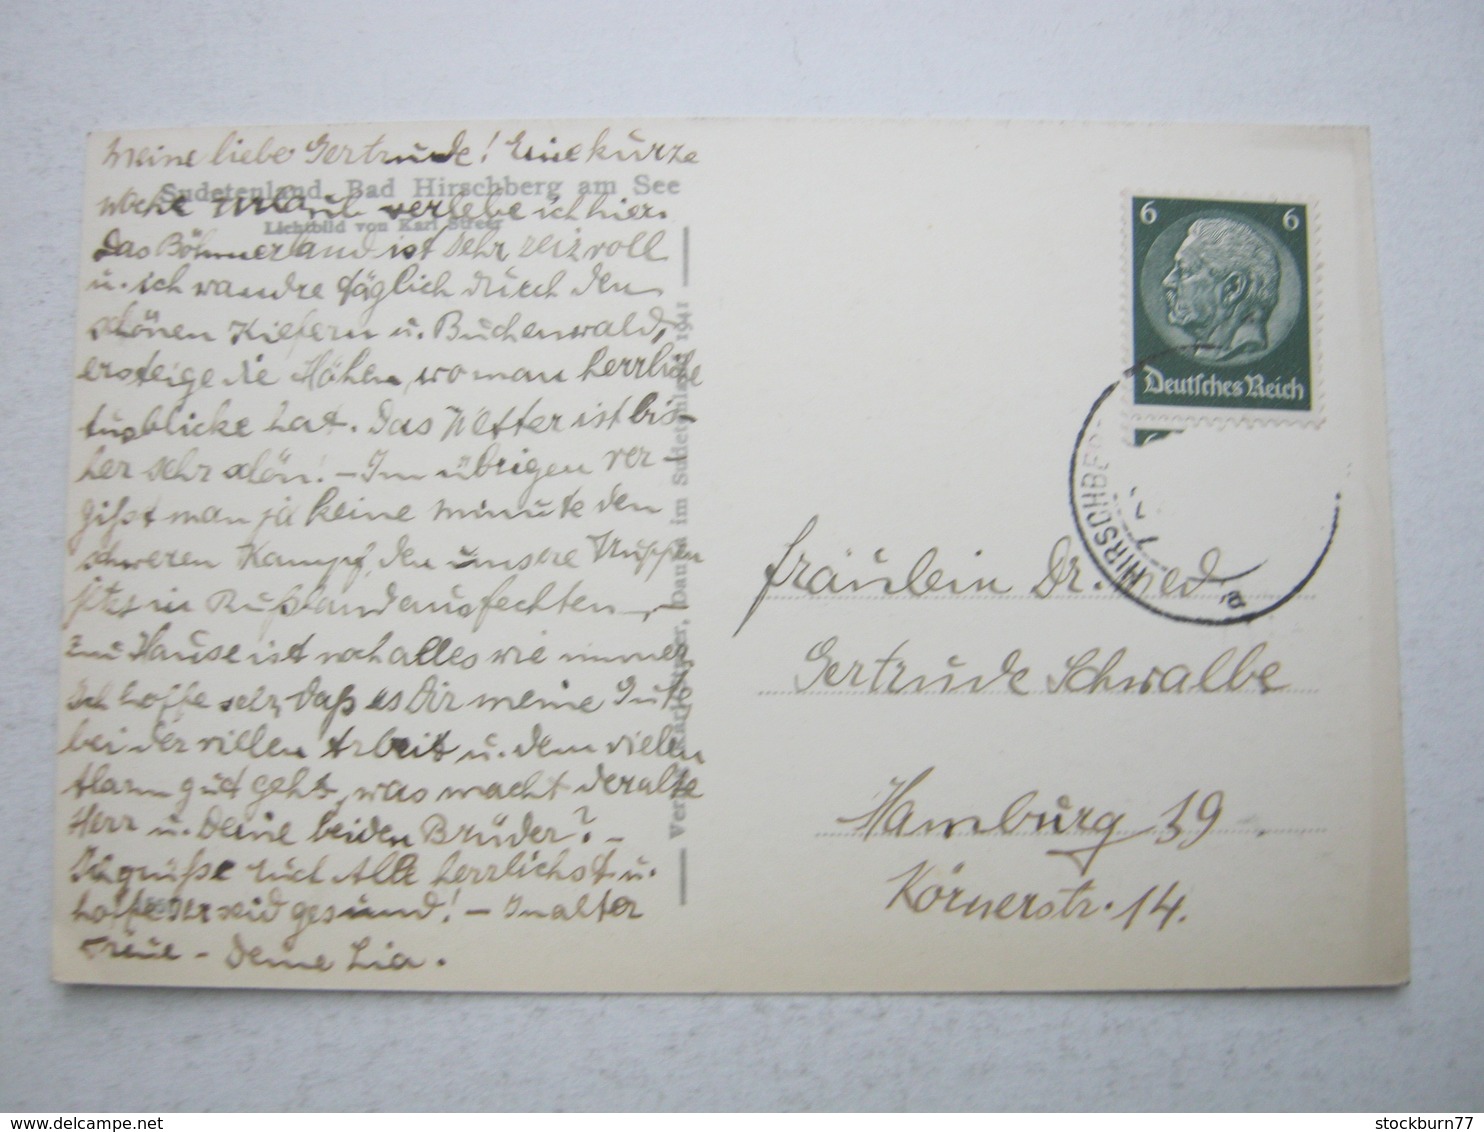 Meine liebe Gertrude! Eine kurze
Sudetenland. Bad Hirschberg am See
Woche Urlaub verlebe ich hier.
Lichtbild von Karl Streer
Das Böhmerland ist sehr reizvoll
u. ich wandre täglich durch den
schönen Kiefern u. Buchenwald,
ersteige die Höhen, wo man herrliche
Ausblicke hat. Das Wetter ist bis-
her sehr schön! – Im übrigen ver-
gißt man ja keine Minute den
schweren Kampf, den unsere Truppen
jetzt in Rußland ausfechten, –
Zu Hause ist noch alles wie immer,
Ich hoffe sehr, daß es Dir meine Gute
bei der vielen Arbeit u. dem vielen
Alarm gut geht, was macht der alte
Herr u. Deine beiden Brüder? –
Ich grüße Euch Alle herrlichst u.
hoffe Ihr seid gesund! – In alter
Treue – Deine Lia.
Verlag Karl Streer, Dauba im Sudetenland 1941
6 6
Deutsches Reich
6
HIRSCHBERG
a
Fräulein Dr. med.
Gertrude Schwalbe
Hamburg 39.
Körnerstr. 14.
stockburn77